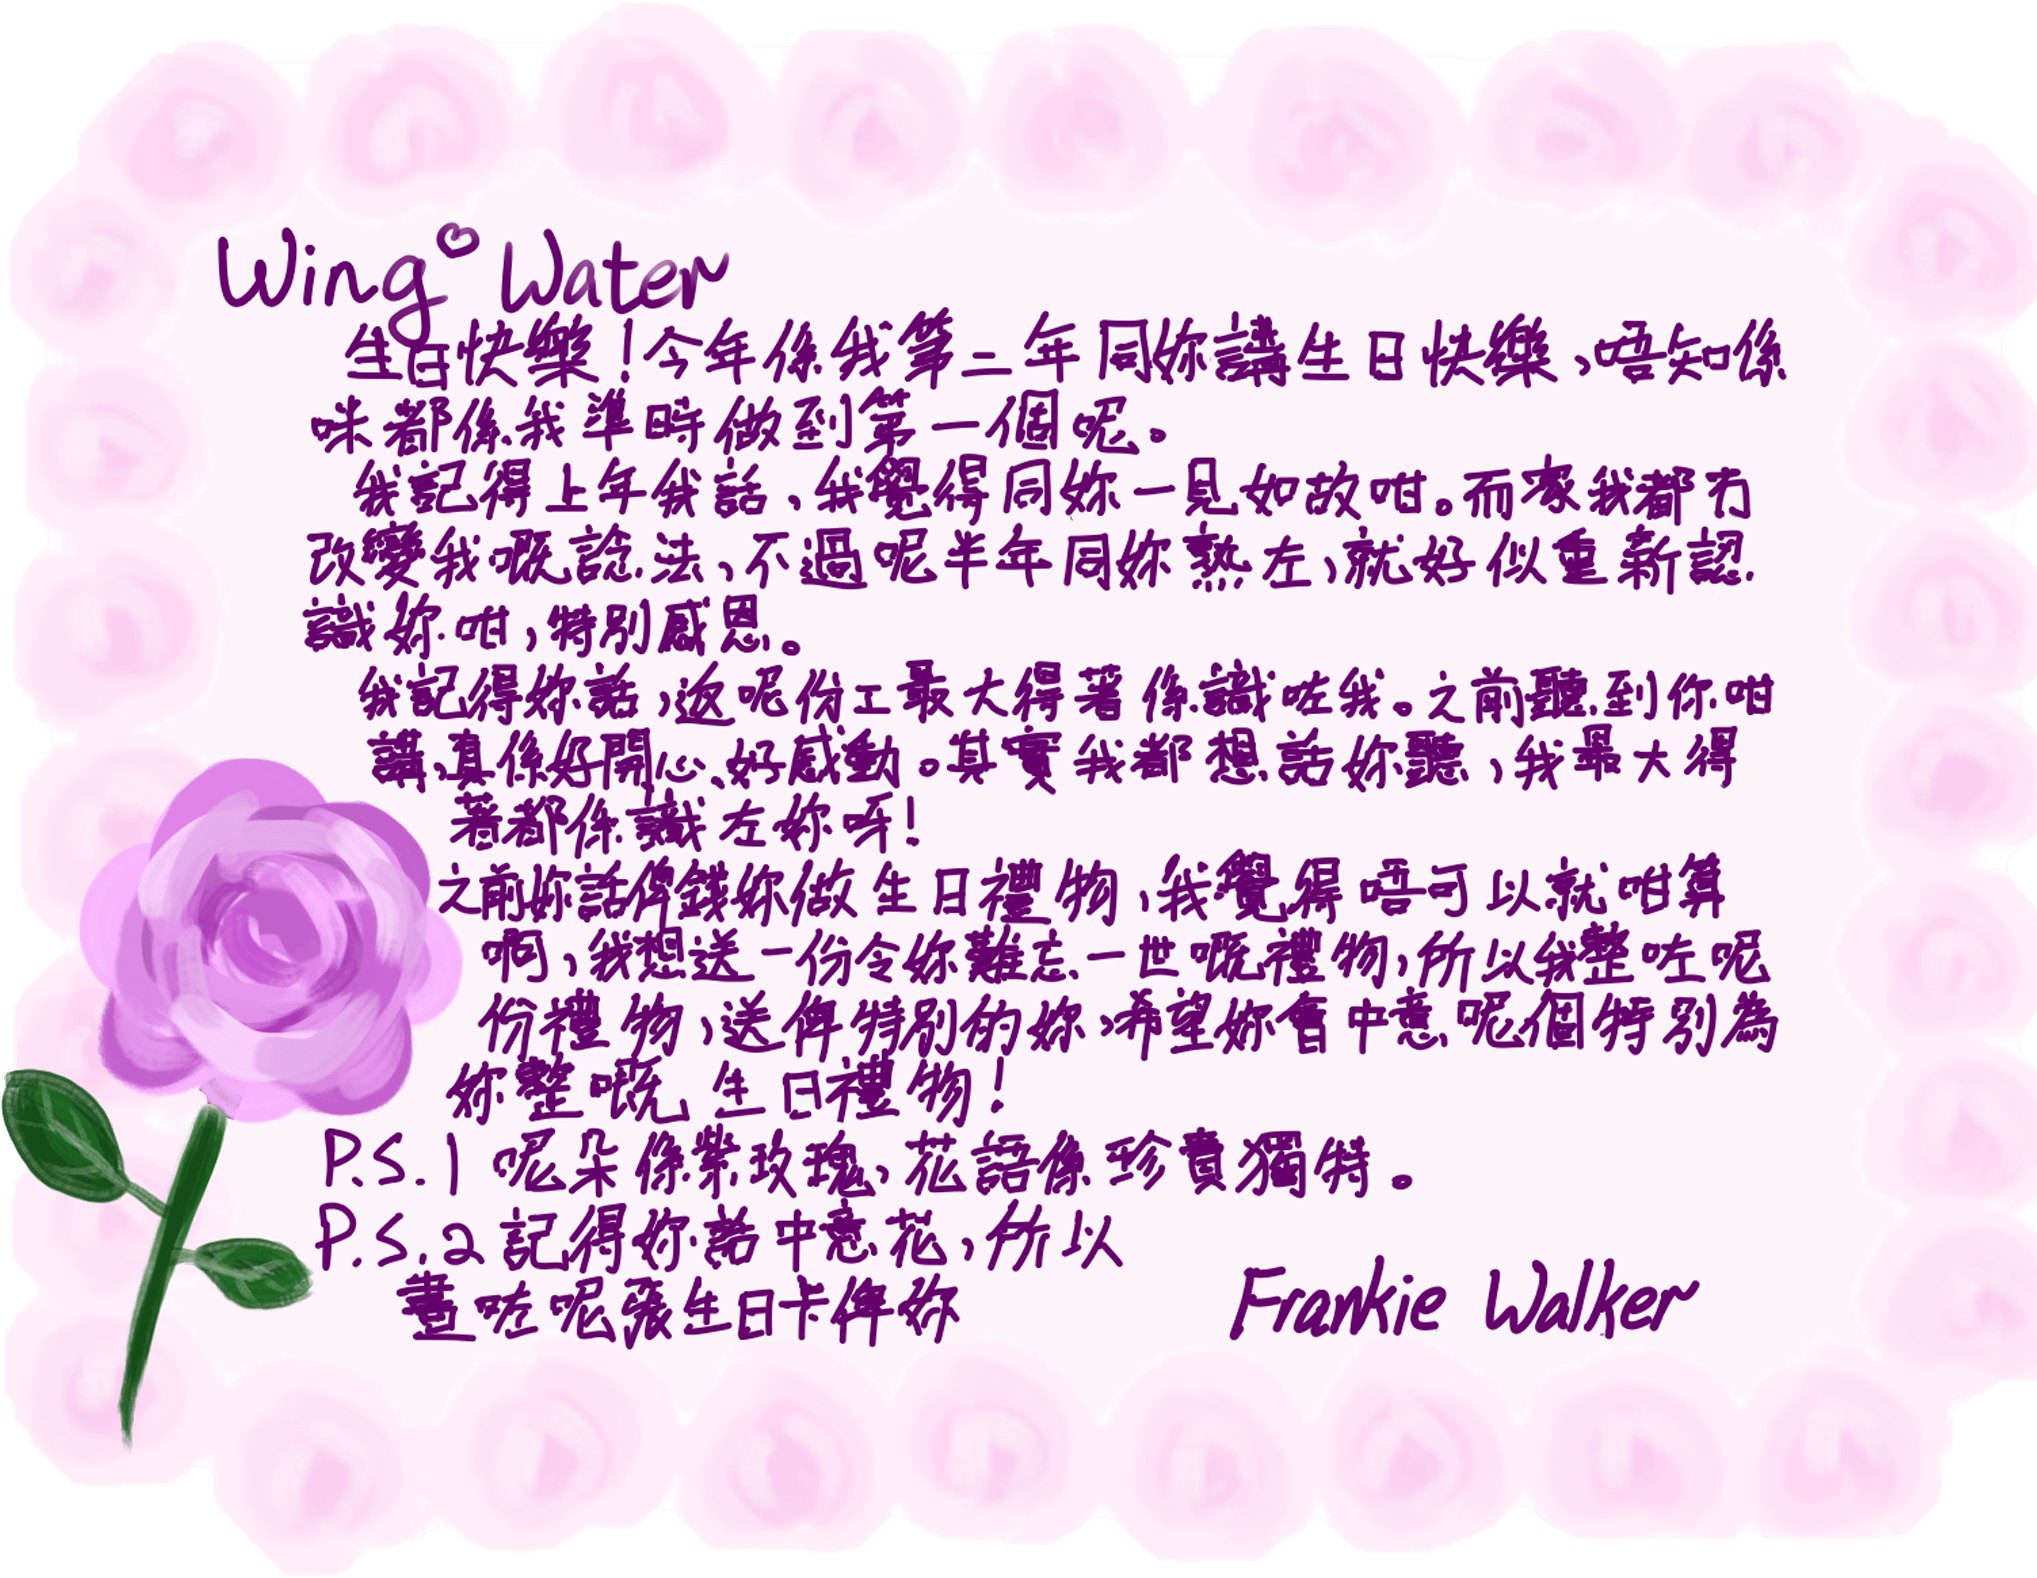 Wing Water
生日快樂！今年係我第二年同妳講生日快樂，唔知係
咪都係我準時做到第一個呢。
我記得上年我話，我覺得同妳一見如故咁。而家我都冇
改變我嘅諗法，不過呢半年同妳熟左，就好似重新認
識妳咁，特別感恩。
我記得妳話，返呢份工最大得著係識咗我。之前聽到你咁
講，真係好開心、好感動。其實我都想話妳聽，我最大得
著都係識左妳呀！
之前妳話俾錢妳做生日禮物，我覺得唔可以就咁算
啊，我想送一份令妳難忘一世嘅禮物，所以我整咗呢
份禮物，送俾特別的妳，希望妳會中意呢個特別為
妳整嘅生日禮物！
P.S.1 呢朵係紫玫瑰，花語係珍貴獨特。
P.S.2 記得妳話中意花，所以
畫咗呢張生日卡俾妳
Frankie Walker